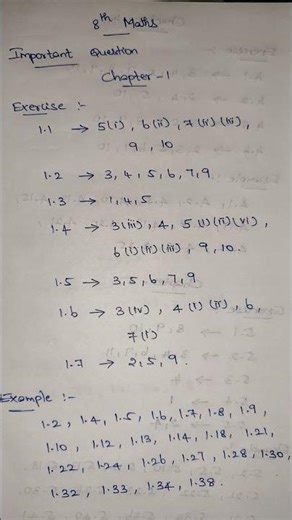 8th Maths
Important Question
Chapter-1
Exercise :-
1.1 → 5(i), 6(ii), 7(ii)(iii),
9, 10
1.2 → 3, 4, 5, 6, 7, 9
1.3 → 1, 4, 5
1.4 → 3(iii), 4, 5(i)(ii)(vi),
6(i)(ii)(iii), 9, 10.
1.5 → 3, 5, 6, 7, 9
1.6 → 3(iv), 4(i)(ii), 6,
7(i)
1.7 → 2, 5, 9.
Example :-
1.2, 1.4, 1.5, 1.6, 1.7, 1.8, 1.9,
1.10, 1.12, 1.13, 1.14, 1.18, 1.21,
1.22, 1.24, 1.26, 1.27, 1.28, 1.30,
1.32, 1.33, 1.34, 1.38.